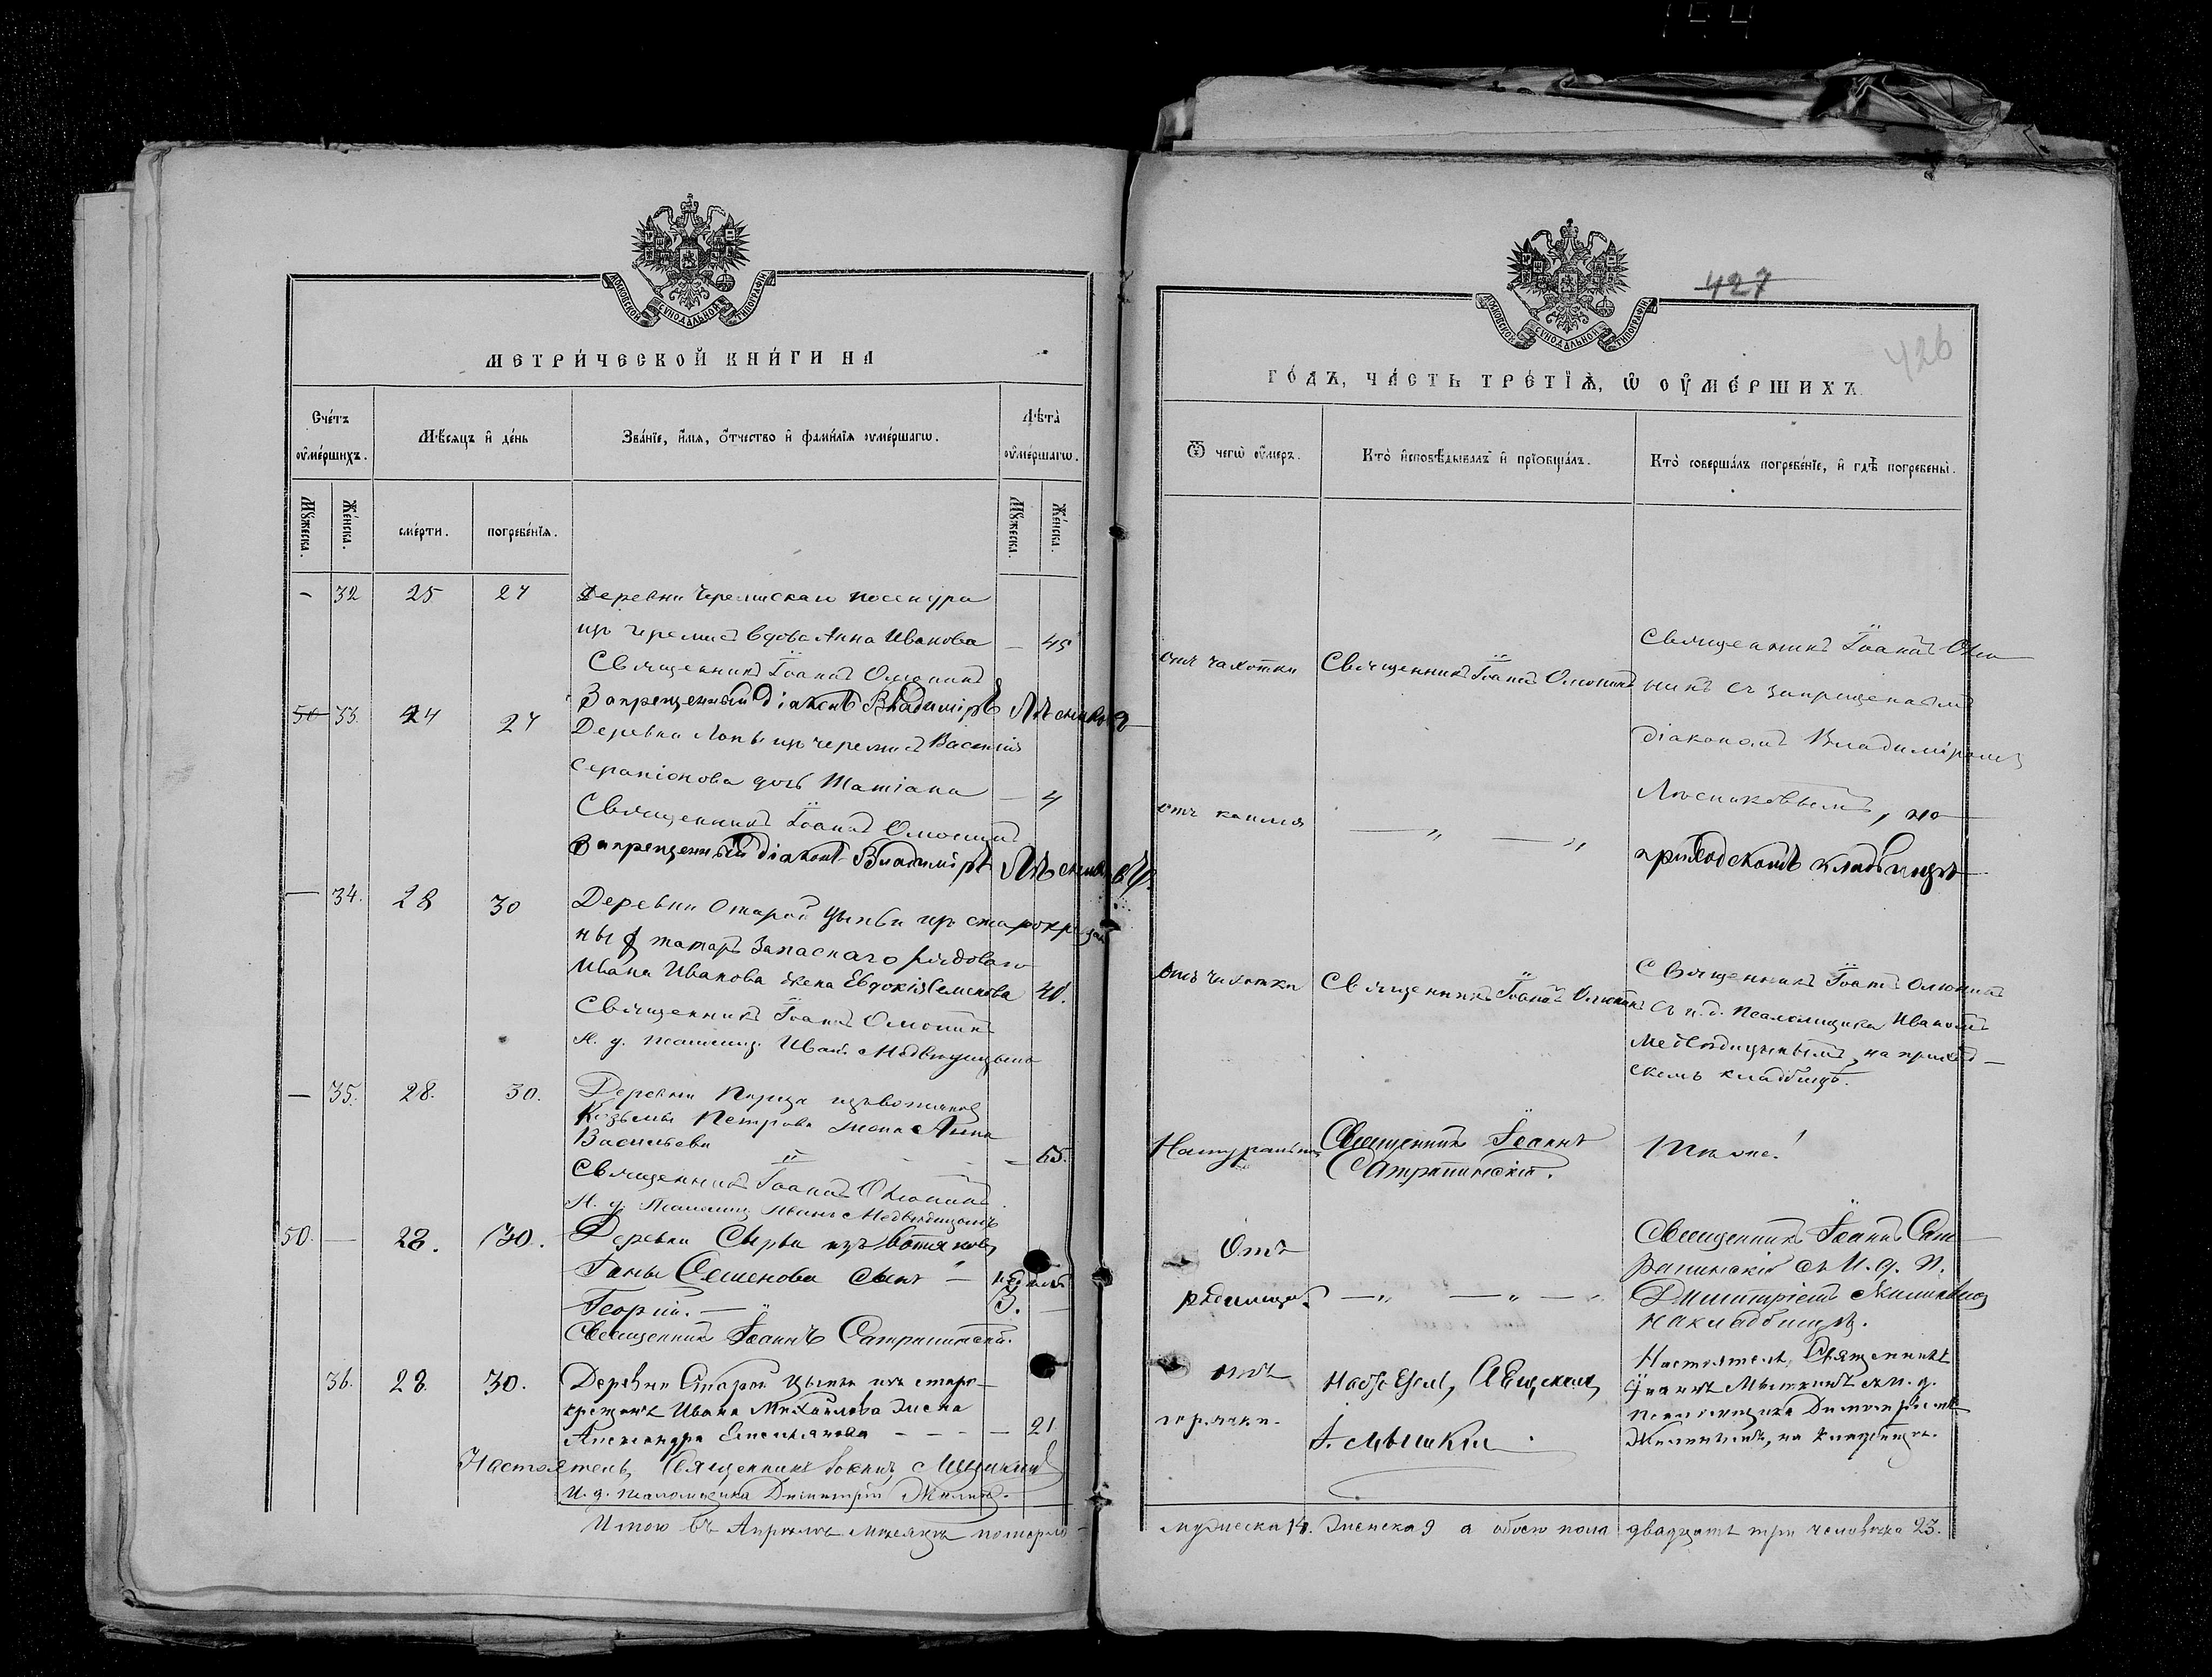 МОСКОВСКОЙ СѴНОДАЛЬНОЙ ТИПОГРАФІИ
МЕТРИ́ЧЕСКОЙ КНИ́ГИ НА
Сче́тъ ᲂу҆ме́ршихъ.
Мѣ́сяцъ и҆ де́нь
Зва́нїе, и҆́мя, ѻ҆́тчество и҆ фами́лїя ᲂу҆ме́ршагѡ.
Лѣ́та ᲂу҆ме́ршагѡ.
Мꙋ́жеска.
Же́нска.
сме́рти.
погребе́нїя.
Мꙋ́жеска.
Же́нска.
— 32 25 27 Деревни Черемискаго
изъ черемисъ вдова Анна Иванова — 45
Священникъ Іоаннъ
Запрещенный діаконъ Владиміръ
50 33. 24 27
Деревни изъ черемисъ Василія
Серапіонова дочь Татіана — 4
Священникъ Іоаннъ
Запрещенный діаконъ Владиміръ
— 34. 28 30 Деревни Старой Цыпьи изъ старокрещен
ныхъ татаръ запаснаго рядоваго
Ивана Иванова жена Евдокія Семенова 40.
Священникъ Іоаннъ
И. д. псаломщ. Иванъ Медвѣдицынъ
— 35. 28. 30. Деревни изъ вотяковъ
Козьмы Петрова жена Анна
Васильева — 65.
Священникъ Іоаннъ
И. д. Псаломщ. Иванъ Медвѣдицынъ
50. — 28. 30. Деревни Сырьи изъ вотяковъ
Семенова сынъ — недѣль
Георгій. — 3. —
Священникъ Іоаннъ Сатрапинскій.
36. 28. 30. Деревни Старой Цыпьи изъ старо-
крещенъ Ивана Михайлова жена
Александра Емельянова — 21.
Настоятель, Священникъ Іоаннъ Мышкинъ
И. д. псаломщика Димитрій
Итого въ Апрѣлѣ мѣсяцѣ померло
427
426
МОСКОВСКОЙ СѴНОДАЛЬНОЙ ТИПОГРАФІИ
ГО́ДЪ, ЧА́СТЬ ТРЕ́ТЇѦ, Ѡ҆ ᲂУ҆МЕ́РШИХЪ.
Ѿ чегѡ̀ ᲂу҆́меръ.
Кто̀ и҆сповѣ́дывалъ и҆ прїѡбща́лъ.
Кто̀ соверша́лъ погребе́нїе, и҆ гдѣ̀ погребены̀.
отъ чахотки Священникъ Іоаннъ
Священникъ Іоаннъ
съ запрещеннымъ
діакономъ Владиміромъ
, на
приходскомъ кладбищѣ
отъ кашля — „ — „
отъ чахотки Священникъ Іоаннъ
Священникъ Іоаннъ
съ и. д. Псаломщика Иваномъ
Медвѣдицынымъ, на приход—
скомъ кладбищѣ.
Натурально Священникъ Іоаннъ Сатрапинскій.
Тѣ же!
Отъ
родимца. — „ — „ —
Священникъ Іоаннъ Сат
рапинскій съ И. д. П.
Дмитріемъ
на кладбищѣ.
отъ
горячки.
Настоятель, Священникъ
І. Мышкинъ.
Настоятель, Священникъ
Іоаннъ Мышкинъ съ и. д.
псаломщика Димитріемъ
, на кладбищѣ.
мужеска 14. женска 9 а обоего пола двадцать три человѣка 23.